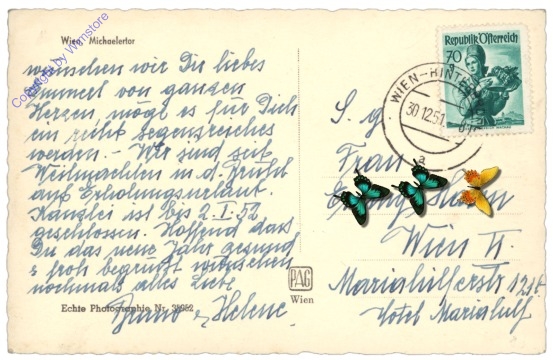 Wien, Michaelertor
Copyright by Wrnstore
wünschen wir Dir liebes
von ganzen
Herzen, mögl es für Dich
ein recht segensreiches
werden. - Wir sind seit
Weihnachten in d.
auf Erholungsurlaub.
Kanzlei ist bis 2. I. 52
geschlossen. Hoffend dass
Du das neue Jahr gesund
& froh begrüßt wünschen
nochmals alles Liebe
Bruno & Helene
Echte Photographie Nr.
PAG
Wien
Republik Österreich
70
WIEN-HINTER
30.12.51
a
S. g.
Frau
Wien VI.
Mariahilferstr
Hotel Mariahilf